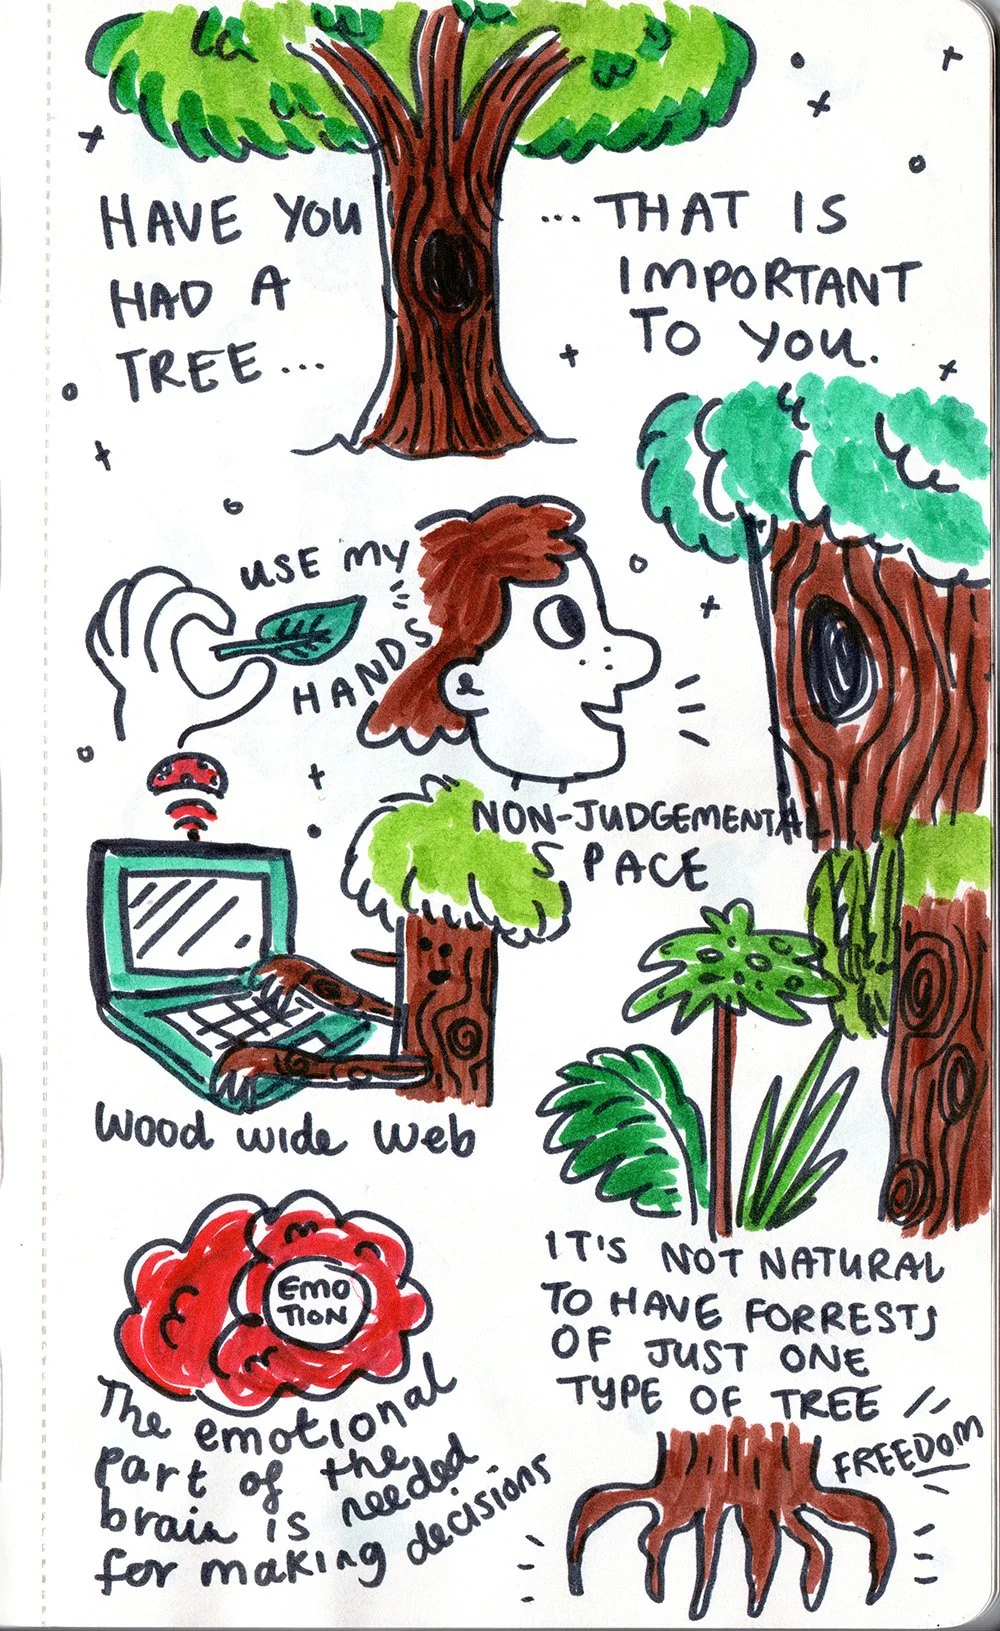 HAVE YOU
HAD A
TREE...
...THAT IS
IMPORTANT
TO YOU.
USE MY
HANDS
NON-JUDGEMENTAL
SPACE
Wood wide web
EMO
TION
The emotional
part of the
brain is needed
for making decisions
IT'S NOT NATURAL
TO HAVE FORRESTS
OF JUST ONE
TYPE OF TREE
FREEDOM